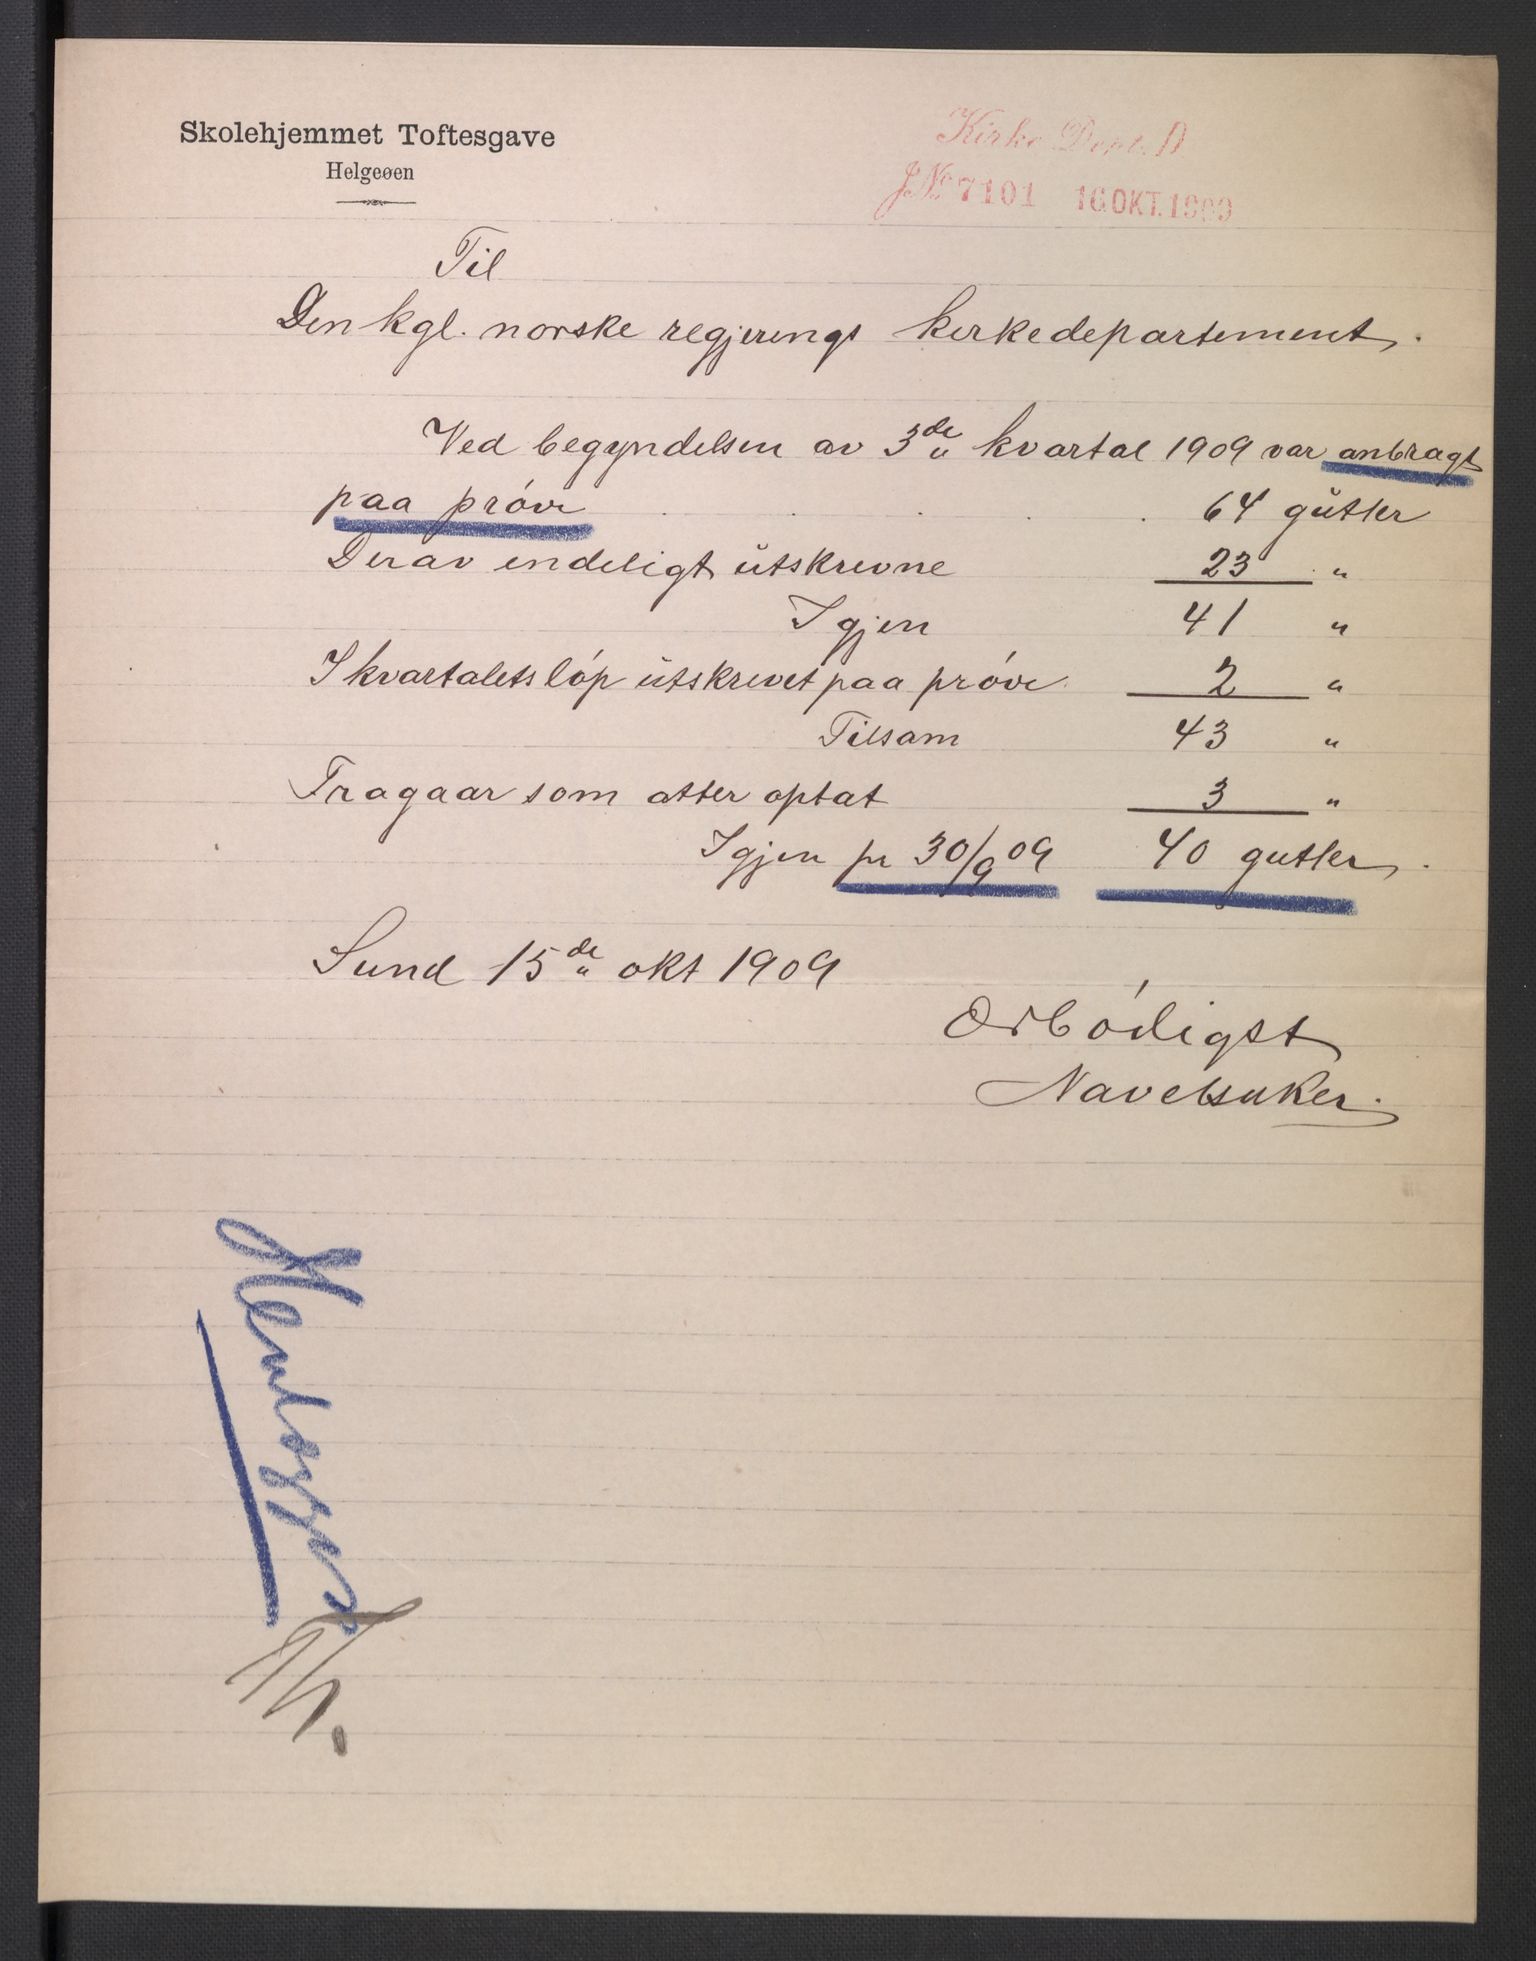 Skolehjemmet Toftesgave
Helgeøen
Kirke Dept. D
JNo 7101 16 OKT. 1909
Til
Den kgl. norske regjerings kirkedepartement.
Ved begyndelsen av 3de kvartal 1909 var anbragt
paa prøve . . . . . 64 gutter
Derav endeligt utskrevne 23 "
Igjen 41 "
I kvartalets løp utskrevet paa prøve 2 "
Tilsam 43 "
Fragaar som atter optat 3 "
Igjen pr 30/9 09 40 gutter.
Sund 15de okt 1909
Ærbødigst
Navelsaker.
Henlægges
Th.